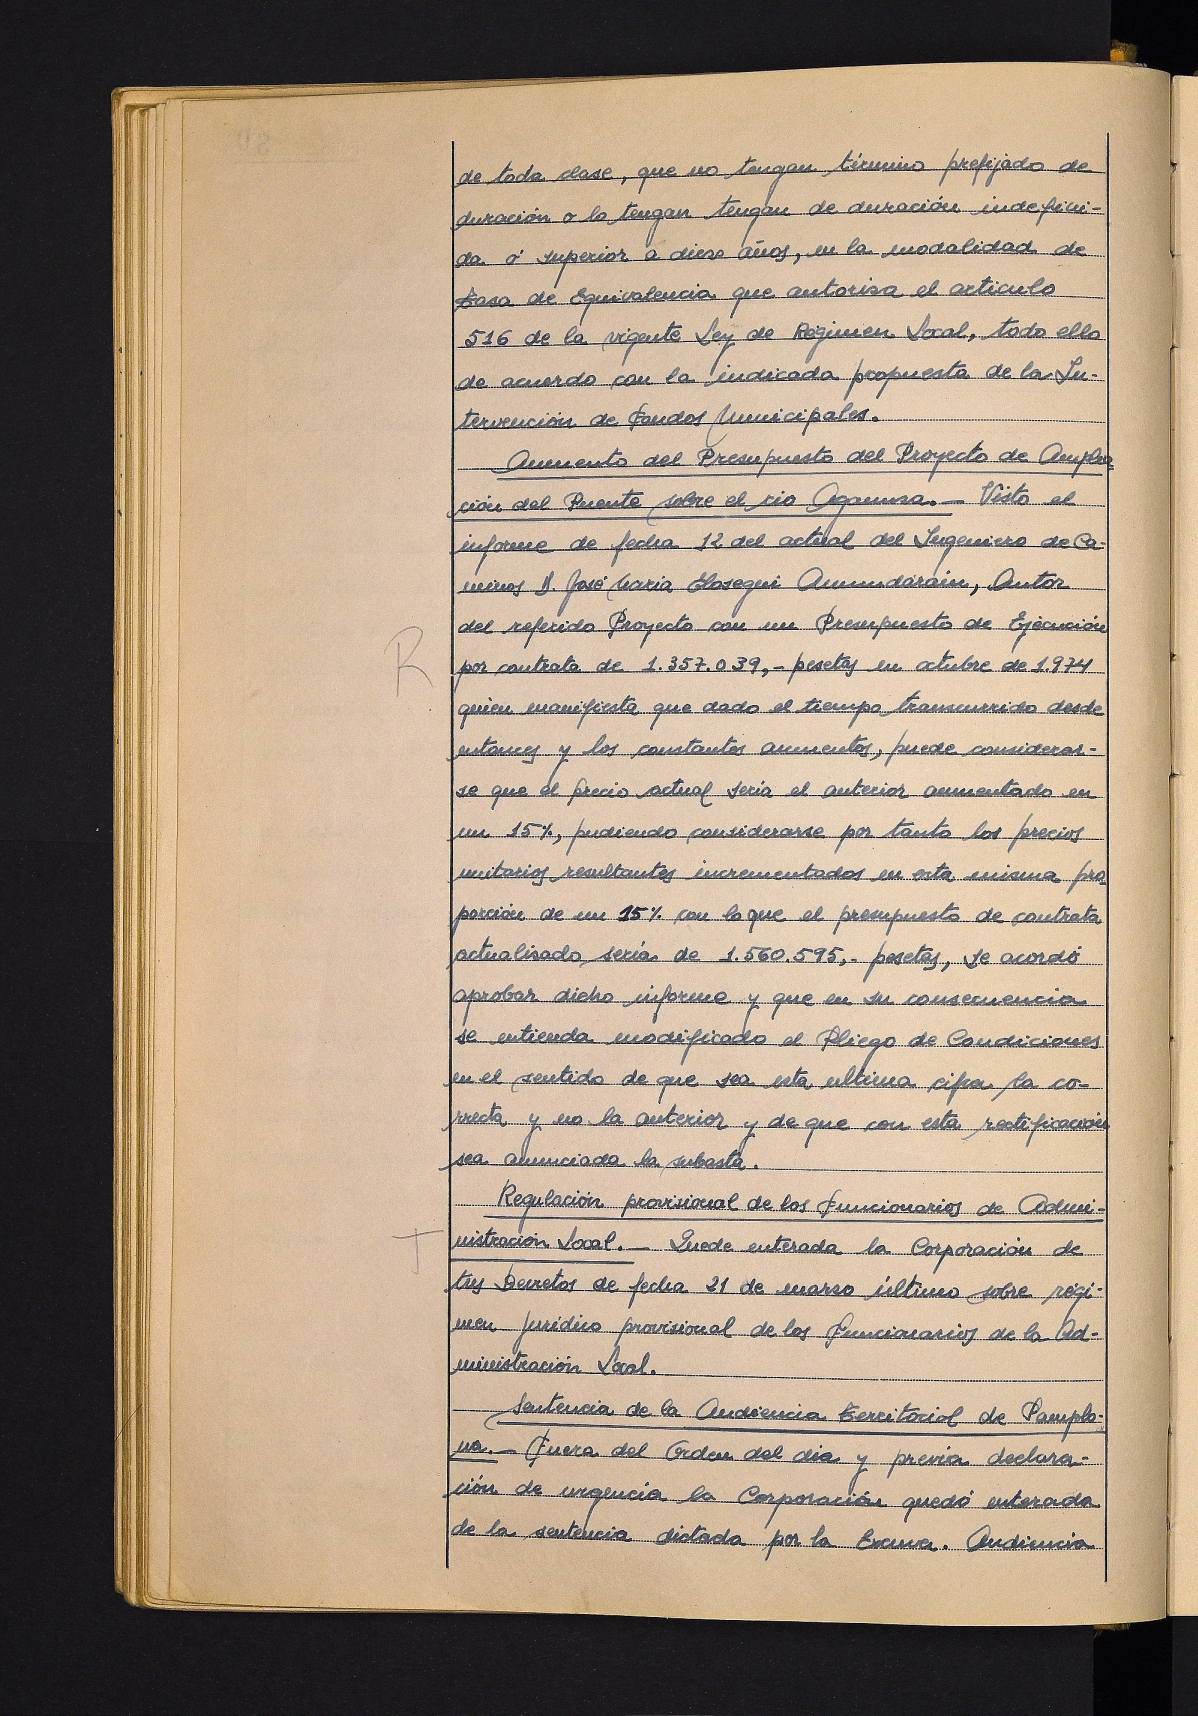 de toda clase, que no tengan término prefijado de
duración o lo tengan tengan de duración indefini-
da ó superior a diez años, en la modalidad de
Tasa de Equivalencia que autoriza el articulo
516 de la vigente Ley de Régimen Local, todo ello
de acuerdo con la indicada propuesta de la In-
tervención de Fondos Municipales.
Aumento del Presupuesto del Proyecto de Amplia-
ción del Puente sobre el rio Agaunza.- Visto el
informe de fecha 12 del actual del Ingeniero de Ca-
minos D. José Maria Elosegui Amundarain, Autor
del referido Proyecto con un Presupuesto de Ejecución
R
por contrata de 1.357.039,- pesetas en octubre de 1.974
quien manifiesta que dado el tiempo transcurrido desde
entonces y los constantes aumentos, puede considerar-
se que el precio actual seria el anterior aumentado en
un 15%, pudiendo considerarse por tanto los precios
unitarios resultantes incrementados en esta misma pro-
porción de un 15% con lo que el presupuesto de contrata
actualizado sería de 1.560.595,- pesetas, se acordó
aprobar dicho informe y que en su consecuencia
se entienda modificado el Pliego de Condiciones
en el sentido de que sea esta ultima cifra la co-
rrecta y no la anterior y de que con esta rectificación
sea anunciada la subasta.
Regulación provisional de los Funcionarios de Admi-
T
nistración Local.- Quede enterada la Corporación de
tres Decretos de fecha 21 de marzo último sobre régi-
men juridico provisional de los Funcionarios de la Ad-
ministración Local.
Sentencia de la Audiencia Territorial de Pamplo-
na.- Fuera del Orden del dia y previa declara-
ción de urgencia la Corporación quedó enterada
de la sentencia dictada por la Excma. Audiencia